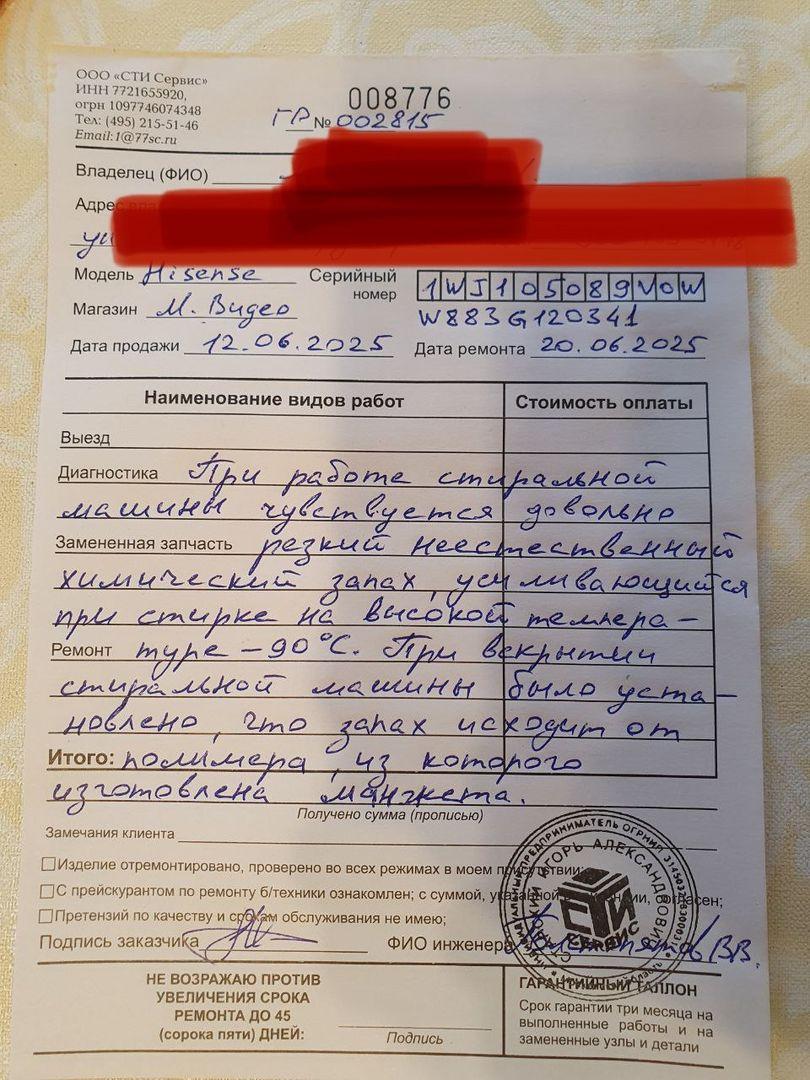 ООО «СТИ Сервис»
ИНН 7721655920,
огрн 1097746074348
Тел: (495) 215-51-46
Email: 1@77sc.ru
008776
ГР № 002815
Владелец (ФИО)
Адрес
ул
Модель Hisense Серийный номер 1WJ105089V0W
Магазин М. Видео W883G120341
Дата продажи 12.06.2025 Дата ремонта 20.06.2025
Наименование видов работ Стоимость оплаты
Выезд
Диагностика При работе стиральной
машины чувствуется довольно
Замененная запчасть резкий неестественный
химический запах, усиливающийся
при стирке на высокой темпера-
Ремонт туре – 90°С. При вскрытии
стиральной машины было уста-
новлено, что запах исходит от
Итого: полимера, из которого
изготовлена манжета.
Получено сумма (прописью)
Замечания клиента
Изделие отремонтировано, проверено во всех режимах в моем присутствии;
С прейскурантом по ремонту б/техники ознакомлен; с суммой, согласен;
Претензий по качеству и срокам обслуживания не имею;
Подпись заказчика ФИО инженера В.В.
ИНДИВИДУАЛЬНЫЙ ПРЕДПРИНИМАТЕЛЬ ОГРНИП
ИГОРЬ АЛЕКСАНДРОВИЧ
СТИ
СЕРВИС
НЕ ВОЗРАЖАЮ ПРОТИВ
УВЕЛИЧЕНИЯ СРОКА
РЕМОНТА ДО 45
(сорока пяти) ДНЕЙ:
Подпись
ГАРАНТИЙНЫЙ ТАЛОН
Срок гарантии три месяца на
выполненные работы и на
замененные узлы и детали